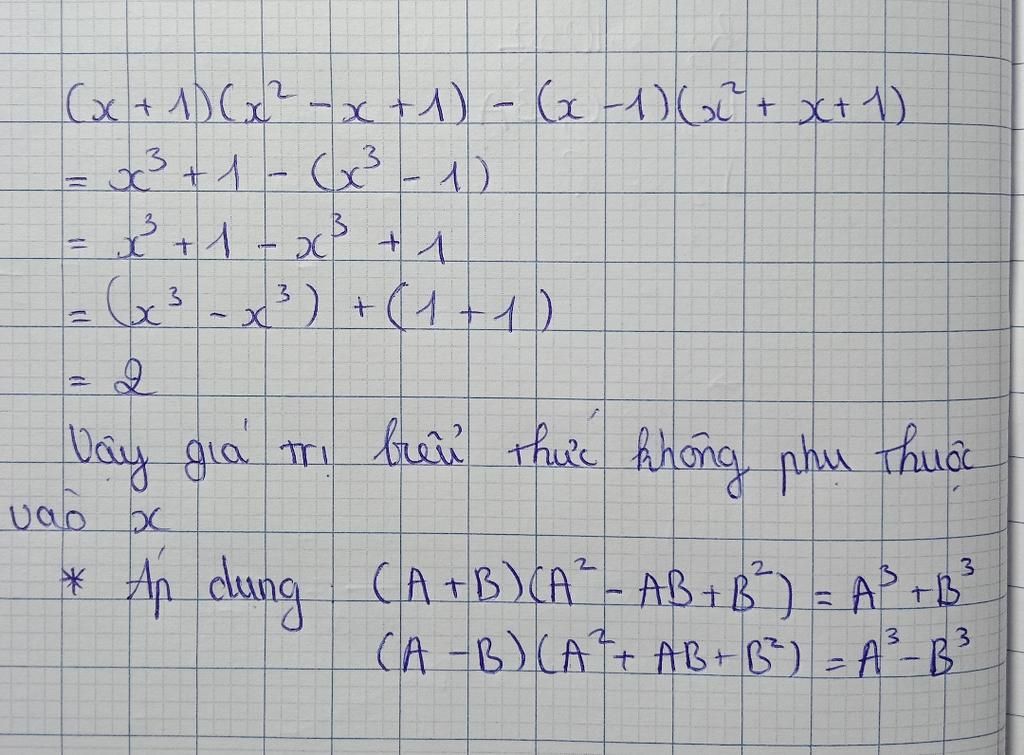 (x + 1)(x² - x + 1) - (x - 1)(x² + x + 1)
= x³ + 1 - (x³ - 1)
= x³ + 1 - x³ + 1
= (x³ - x³) + (1 + 1)
= 2
Vậy giá trị biểu thức không phụ thuộc
vào x
* Áp dụng (A + B)(A² - AB + B²) = A³ + B³
(A - B)(A² + AB + B²) = A³ - B³